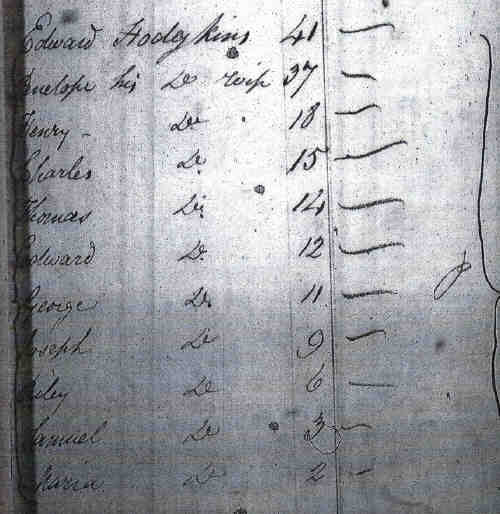 Edward Hodgkins 41 —
Penelope his Do wife 37 —
Henry - Do 18 —
Charles Do 15 —
Thomas Do 14 —
Edward Do 12 —
George Do 11 —
Joseph Do 9 —
Do 6 —
Samuel Do 3 —
Maria Do 2 —